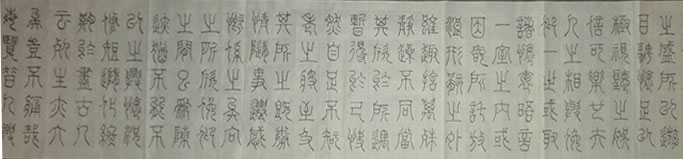 之盛所以遊
目騁懷足以
極視聽之娛
信可樂也夫
人之相與俯
仰一世或取
諸懷抱悟言
一室之內或
因寄所託放
浪形骸之外
雖趣舍萬殊
靜躁不同當
其欣於所遇
暫得於己快
然自足不知
老之將至及
其所之既倦
情隨事遷感
慨係之矣向
之所欣俛仰
之間以為陳
迹猶不能不
以之興懷況
修短隨化終
期於盡古人
云死生亦大
矣豈不痛哉
每覽昔人興